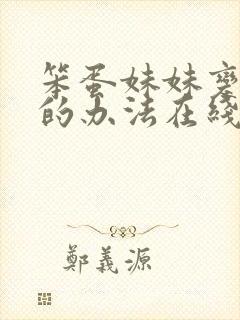 笨蛋妹妹
的办法在线
鄭義源